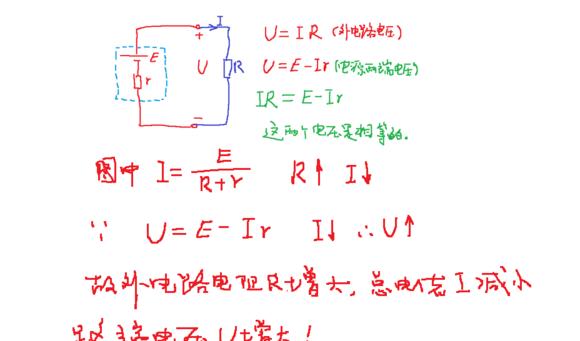 I
+
E
r
U
R
−
U = IR (外电路电压)
U = E - Ir (电源两端电压)
IR = E - Ir
这两个电压是相等的.
图中 I = E/(R+r) R↑ I↓
∵ U = E - Ir I↓ ∴ U↑
故外电路电阻R增大, 总电流I减小
路端电压U增大!